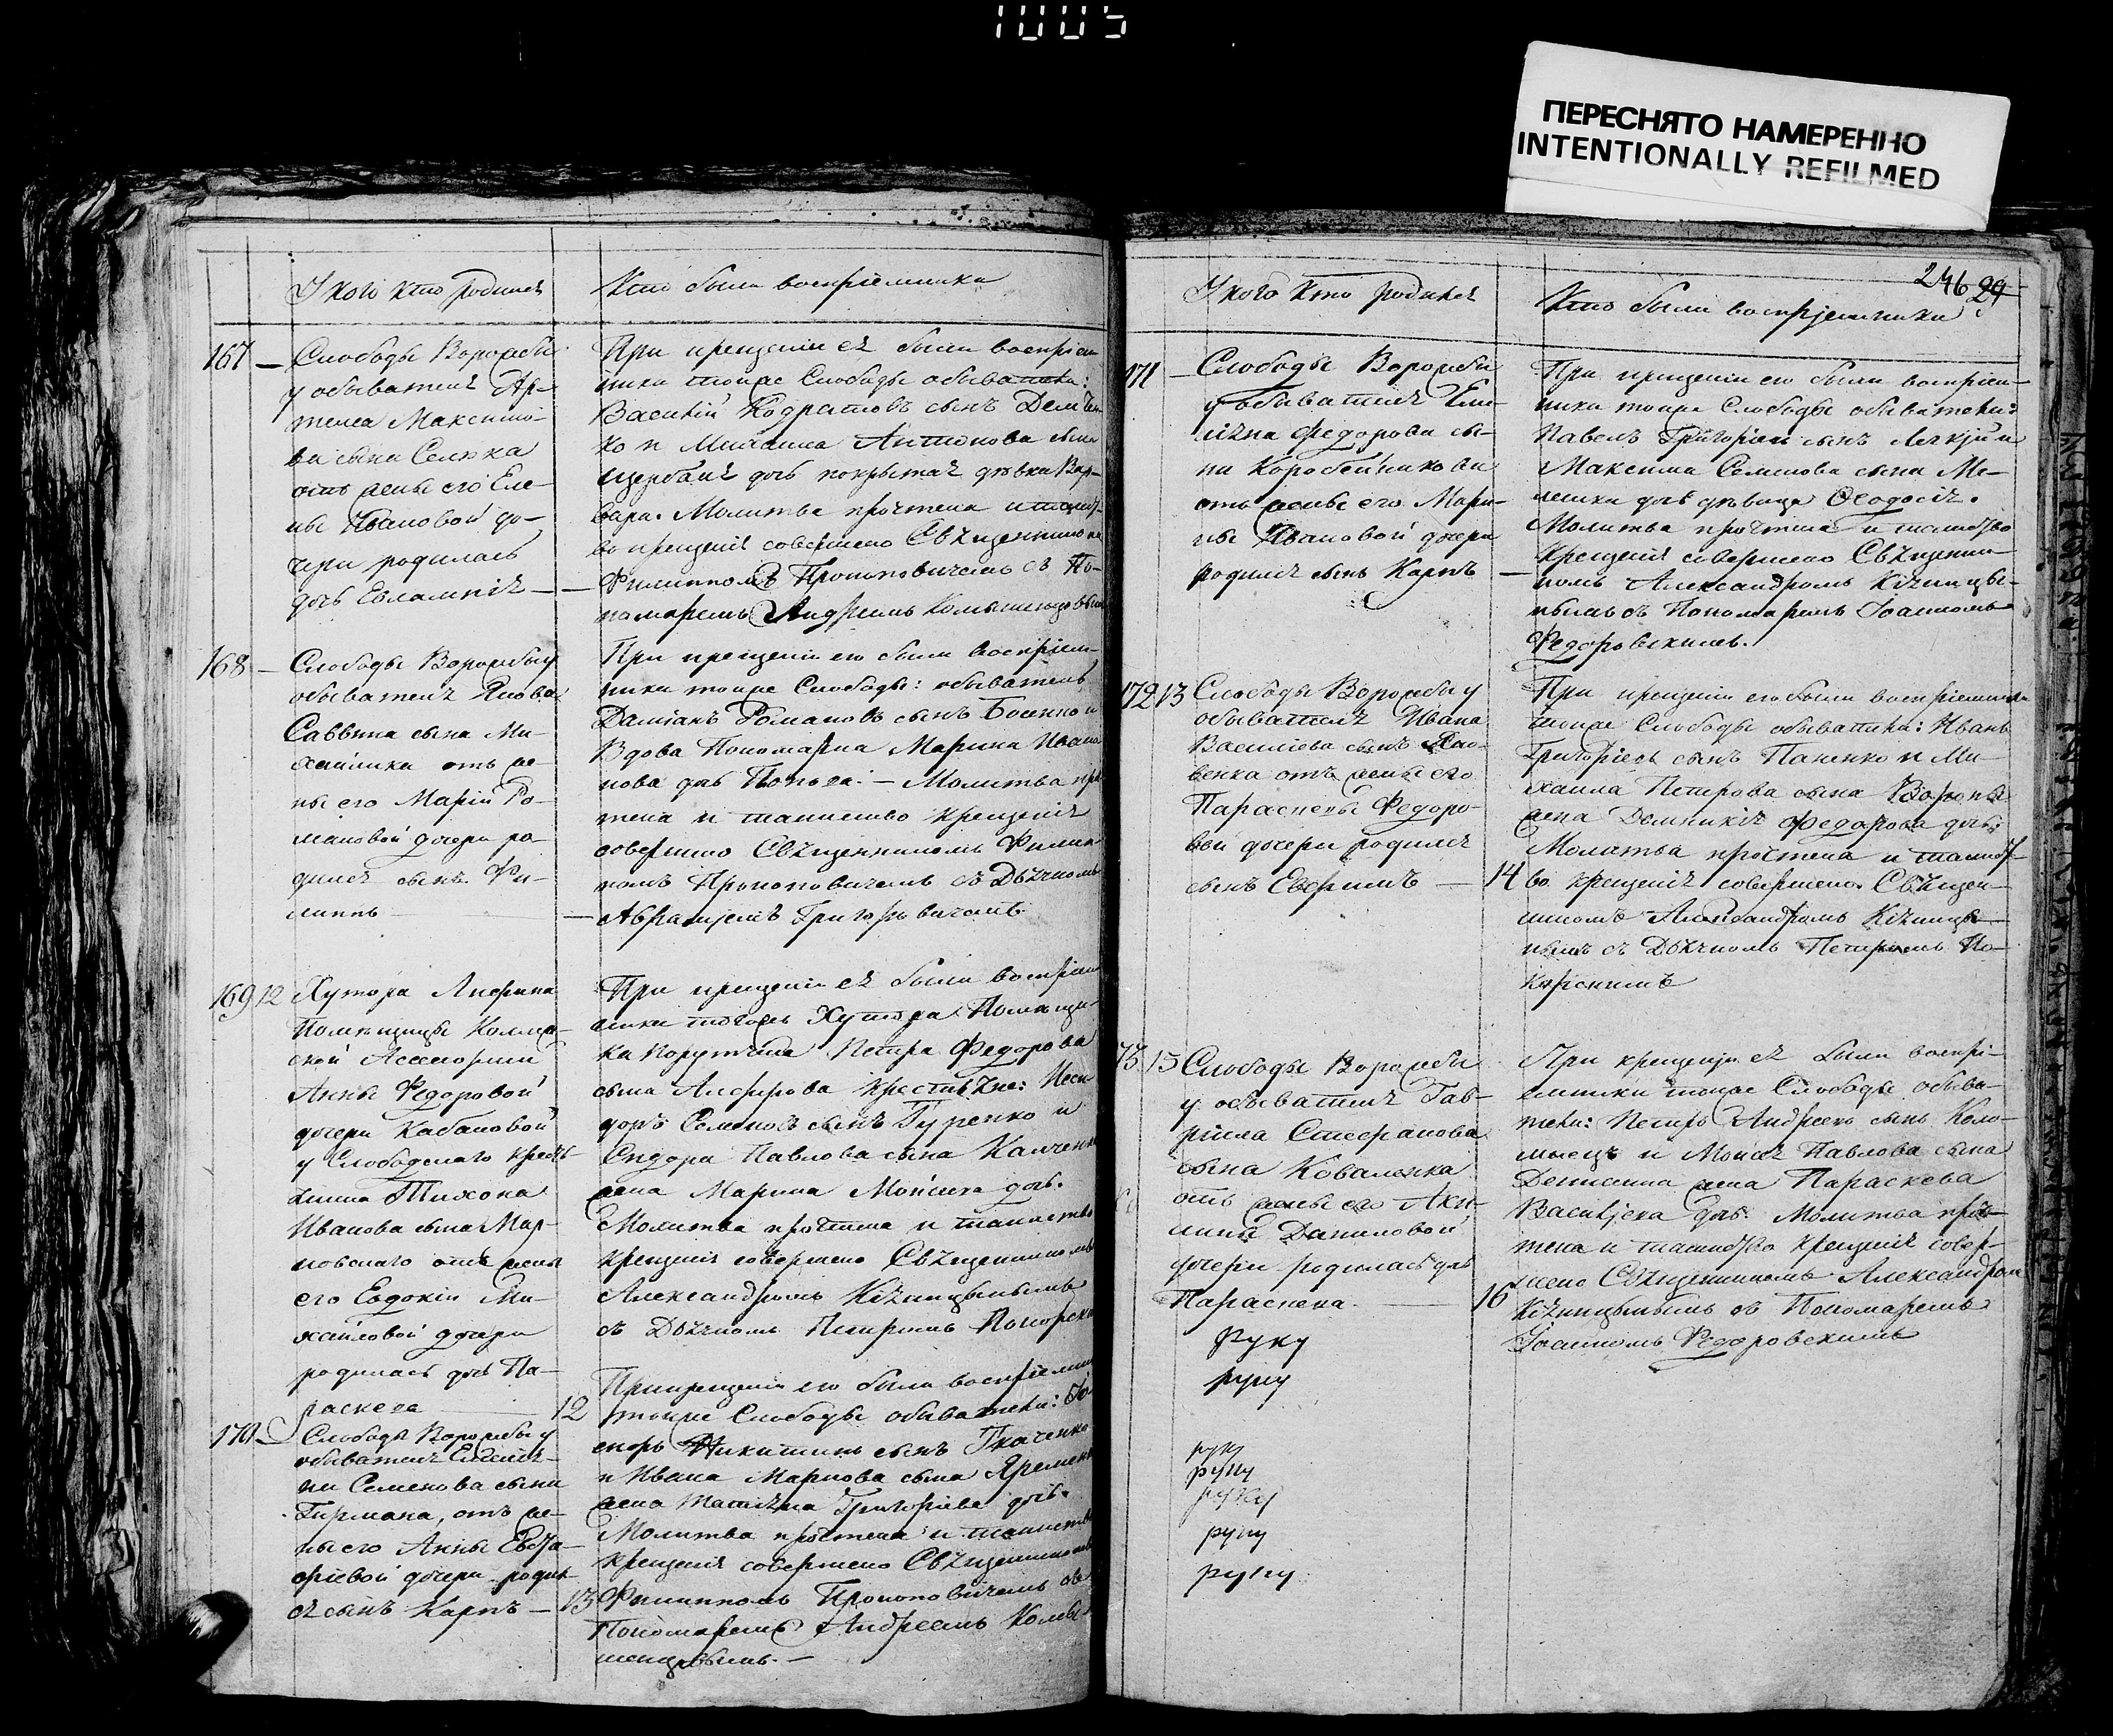 1005
ПЕРЕСНЯТО НАМЕРЕННО
INTENTIONALLY REFILMED
У кого кто родился
Кто были воспріемники
167 —
Слободы Ворожбы
у обывателя Ар-
тема Максимо-
ва сына
отъ жены его Еле-
ны Ивановой до-
чери родилась
дочь Евлампія —
При крещеніи ея были воспріем
ники тояже Слободы обыватели:
Василій Кодратовъ сынъ Демчен
ко и Михаила Антонова сына
дочь покрытая дѣвка Вар-
вара. Молитва прочтена и таинст-
во крещенія совершено Священнико
Филиппомъ Прокоповичемъ съ По-
намаремъ Андреемъ
168 —
Слободы Ворожбы у
обывателя Якова
Саввина сына Ми-
хайлика отъ же-
ны его Маріи Ро-
мановой дочери ро-
дился сынъ Фи-
липпъ —
При крещеніи его были воспріем-
ники тояже Слободы: обыватель
Даміанъ Романовъ сынъ Босенко и
Вдова Пономарка Марина Ивана
нова дчь Попова. — Молитва про
тена и таинство крещенія
совершено Священникомъ Филип-
помъ Прокоповичемъ съ Дьячкомъ
Авраміемъ Григоровичемъ
169 12
Хутора
Помѣщицы Коллеж-
ской Асессорши
Анны Федоровой
дочери Кабановой
у Слободскаго крестья-
нина Тихона
Иванова сына Мар-
ковскаго отъ жены
его Евдокіи Ми-
хайловой дочери
родилась дчь Па-
раскева — 12
При крещеніи ея были воспріем
ники тогожъ Хутора Помѣщи-
ка Порутчика Петра Федорова
сына Алферова крестьяне: Иси
доръ Семеновъ сынъ Гуренко и
Сидора Павлова сына
жена Марина Моисеева дчь.
Молитва прочтена и таинство
крещенія совершено Священникомъ
Александромъ
съ Дьячкомъ Петромъ
170 —
Слободы Ворожбы у
обывателя
на Семенова сына
Гирмана, отъ же-
ны его Анны Евста-
фіевой дочери родил-
ся сынъ Карпъ — 13
При крещеніи его были воспріемни
тояже Слободы обыватели:
Никитинъ сынъ Ткаченко
и Ивана Маркова сына Яременк
жена Татіяна Григоріева дчь.
Молитва прочтена и таинство
крещенія совершено Священникомъ
Филиппомъ Прокоповичемъ со
Пономаремъ Андреемъ
У кого кто родился
246 29
Кто были воспріемники
171 —
Слободы Ворожбы
у обывателя Еме-
ліяна Федорова сы-
на Коробейникова
отъ жены его Мари-
ны Ивановой дочери
родился сынъ Карпъ —
При крещеніи его были воспріем-
ники тояже Слободы обыватели:
Павелъ Григоріевъ сынъ и
Максима Семенова сына Ме-
лешка дчь дѣвица Ѳеодосія.
Молитва прочтена и таинство
Крещенія совершено Священни-
комъ Александромъ
съ Пономаремъ Іоанномъ
Федоровскимъ.
172 13
Слободы Ворожбы у
обывателя Ивана
Василіева сына Яко-
венка отъ жены его
Параскевы Федоро-
вой дочери родился
сынъ Евфимъ — 14
При крещеніи его были воспріемники
тояже Слободы обыватели: Иванъ
Григоріевъ сынъ Паненко и Ми-
хаила Петрова сына
жена Домникія Федорова дчь.
Молитва прочтена и таинст-
во крещенія совершено Священ-
никомъ Александромъ
съ Дьячкомъ Петромъ По-
корскимъ
73 15
Слободы Ворожбы
у обывателя Гав-
ріила Стефанова
сына Коваленка
отъ жены его Аку-
лины Даниловой
дочери родилась дчь
Параскева. — 16
При крещеніи ея были воспрі-
емники тояже Слободы обыва-
тели: Петръ Андреевъ сынъ Коло-
мыецъ и Моисея Павлова сына
жена Параскева
Василіева дчь. Молитва проч-
тена и таинство крещенія совер-
шено Священникомъ Александромъ
съ Пономаремъ
Іоанномъ Федоровскимъ
руку
руку
руку
руку
руку
руку
руку